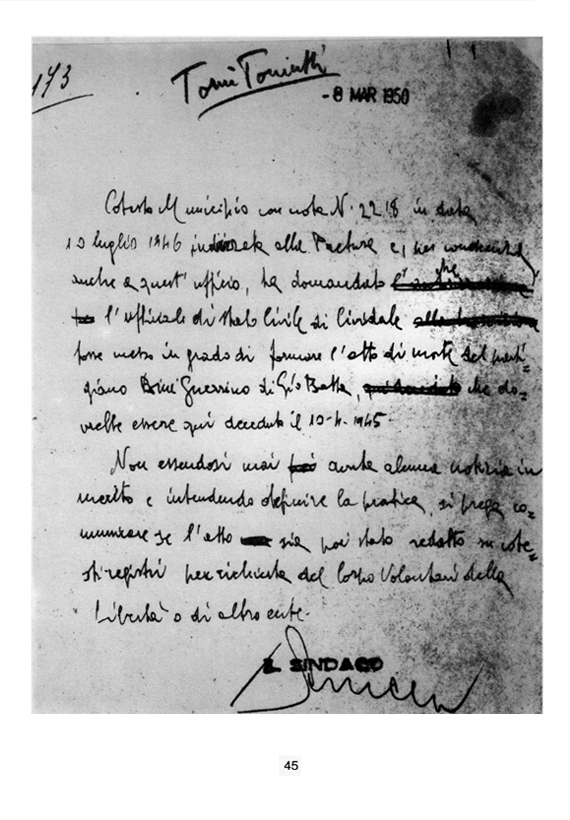 173
- 8 MAR 1950
Cotesto Municipio con nota N. 2218 in data
10 luglio 1946 indirizzata alla Pretura e, per conoscenza,
anche a quest' ufficio, ha domandato che
l'ufficiale di stato Civile di Cividale
fosse messo in grado di formare l'atto di morte del parti=
giano Guerrino di Gio Batta, che do=
vrebbe essere qui deceduto il 10-4-1945-
Non essendosi mai avuta alcuna notizia in
merito e intendendo definire la pratica, si prega co=
municare se l'atto sia poi stato redatto su cote=
sti registri per richiesta del Corpo Volontari della
Libertà o di altro ente.
IL SINDACO
45